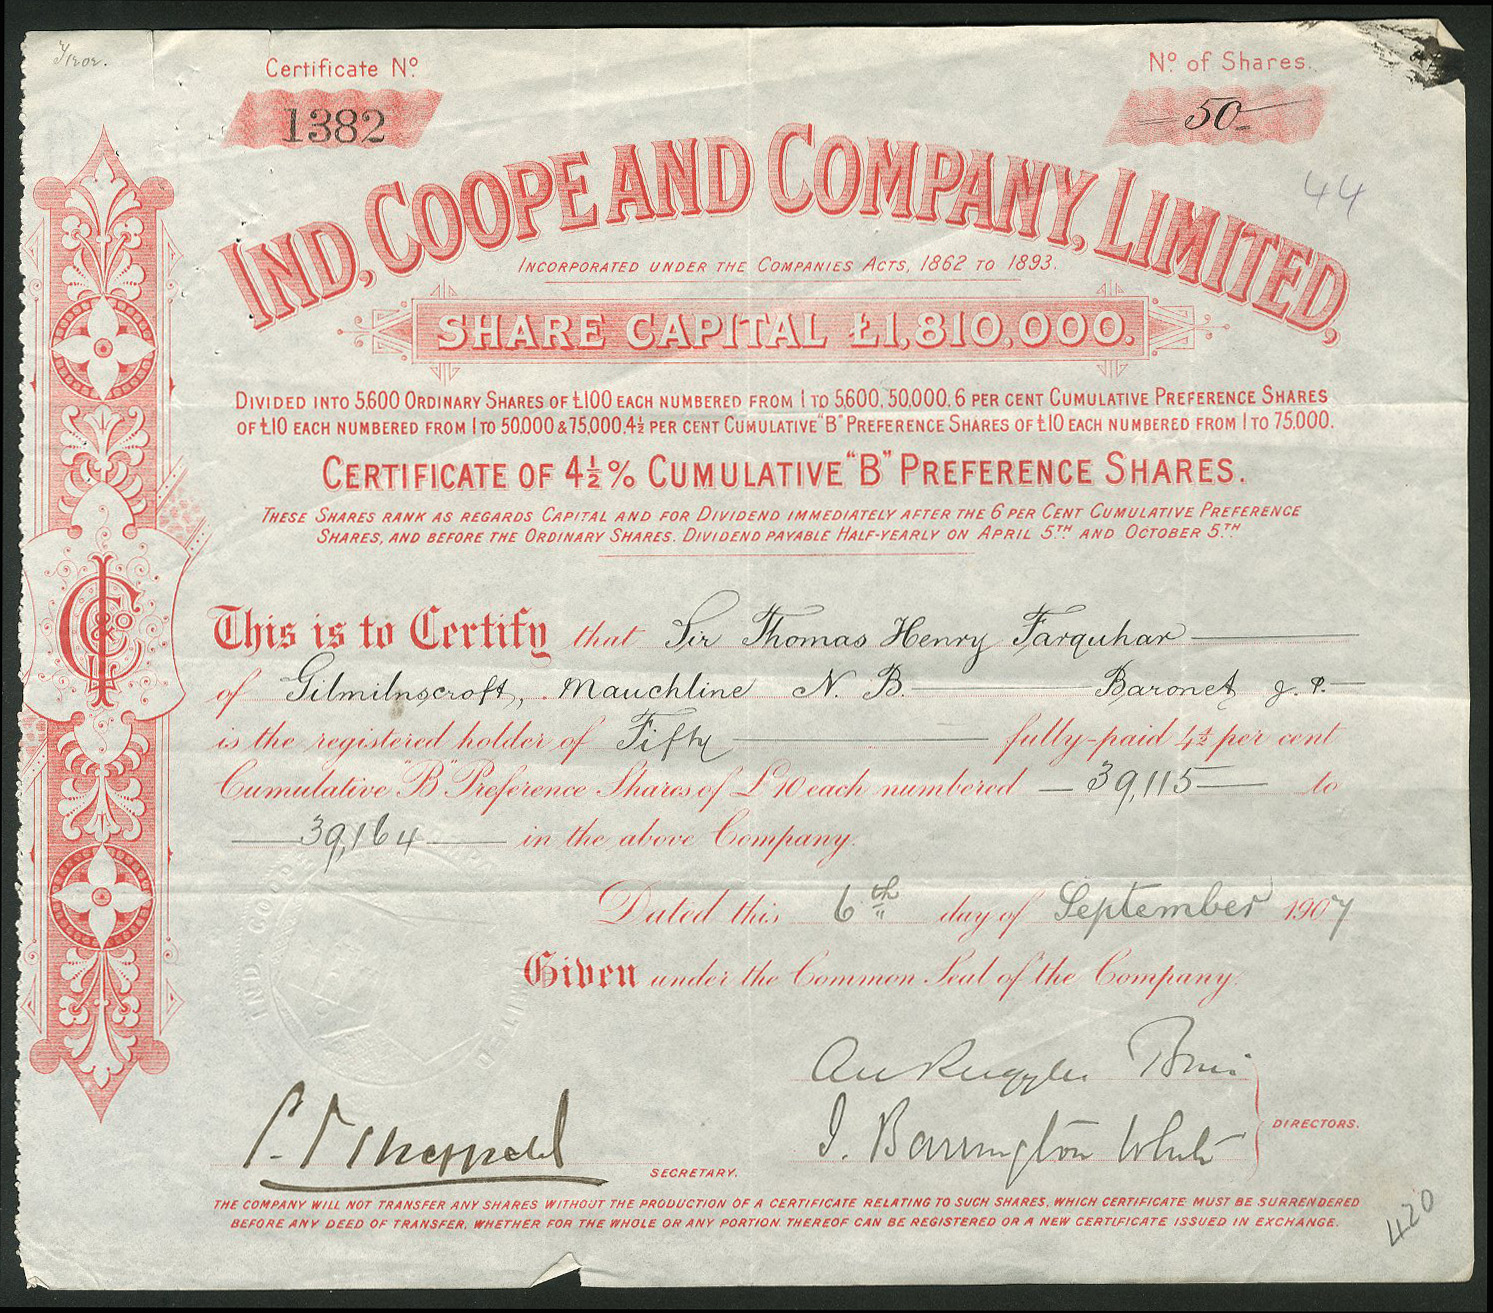 Certificate No. No. of Shares.
1382 50
44
IND, COOPE AND COMPANY, LIMITED,
INCORPORATED UNDER THE COMPANIES ACTS, 1862 TO 1893.
SHARE CAPITAL £1,810,000.
DIVIDED INTO 5,600 ORDINARY SHARES OF £100 EACH NUMBERED FROM 1 TO 5,600, 50,000, 6 PER CENT CUMULATIVE PREFERENCE SHARES
OF £10 EACH NUMBERED FROM 1 TO 50,000 & 75,000, 4½ PER CENT CUMULATIVE "B" PREFERENCE SHARES OF £10 EACH NUMBERED FROM 1 TO 75,000.
CERTIFICATE OF 4½% CUMULATIVE "B" PREFERENCE SHARES.
THESE SHARES RANK AS REGARDS CAPITAL AND FOR DIVIDEND IMMEDIATELY AFTER THE 6 PER CENT CUMULATIVE PREFERENCE
SHARES, AND BEFORE THE ORDINARY SHARES. DIVIDEND PAYABLE HALF-YEARLY ON APRIL 5TH AND OCTOBER 5TH
This is to Certify that Sir Thomas Henry Farquhar
of Gilmilnscroft, Mauchline N. B. Baronet J. P.
is the registered holder of Fifty fully-paid 4½ per cent
Cumulative "B" Preference Shares of £10 each numbered 39,115 to
39,164 in the above Company.
Dated this 6th day of September 1907
Given under the Common Seal of the Company.
J. Barrington White
DIRECTORS.
Sheppard
SECRETARY.
THE COMPANY WILL NOT TRANSFER ANY SHARES WITHOUT THE PRODUCTION OF A CERTIFICATE RELATING TO SUCH SHARES, WHICH CERTIFICATE MUST BE SURRENDERED
BEFORE ANY DEED OF TRANSFER, WHETHER FOR THE WHOLE OR ANY PORTION THEREOF CAN BE REGISTERED OR A NEW CERTIFICATE ISSUED IN EXCHANGE.
420